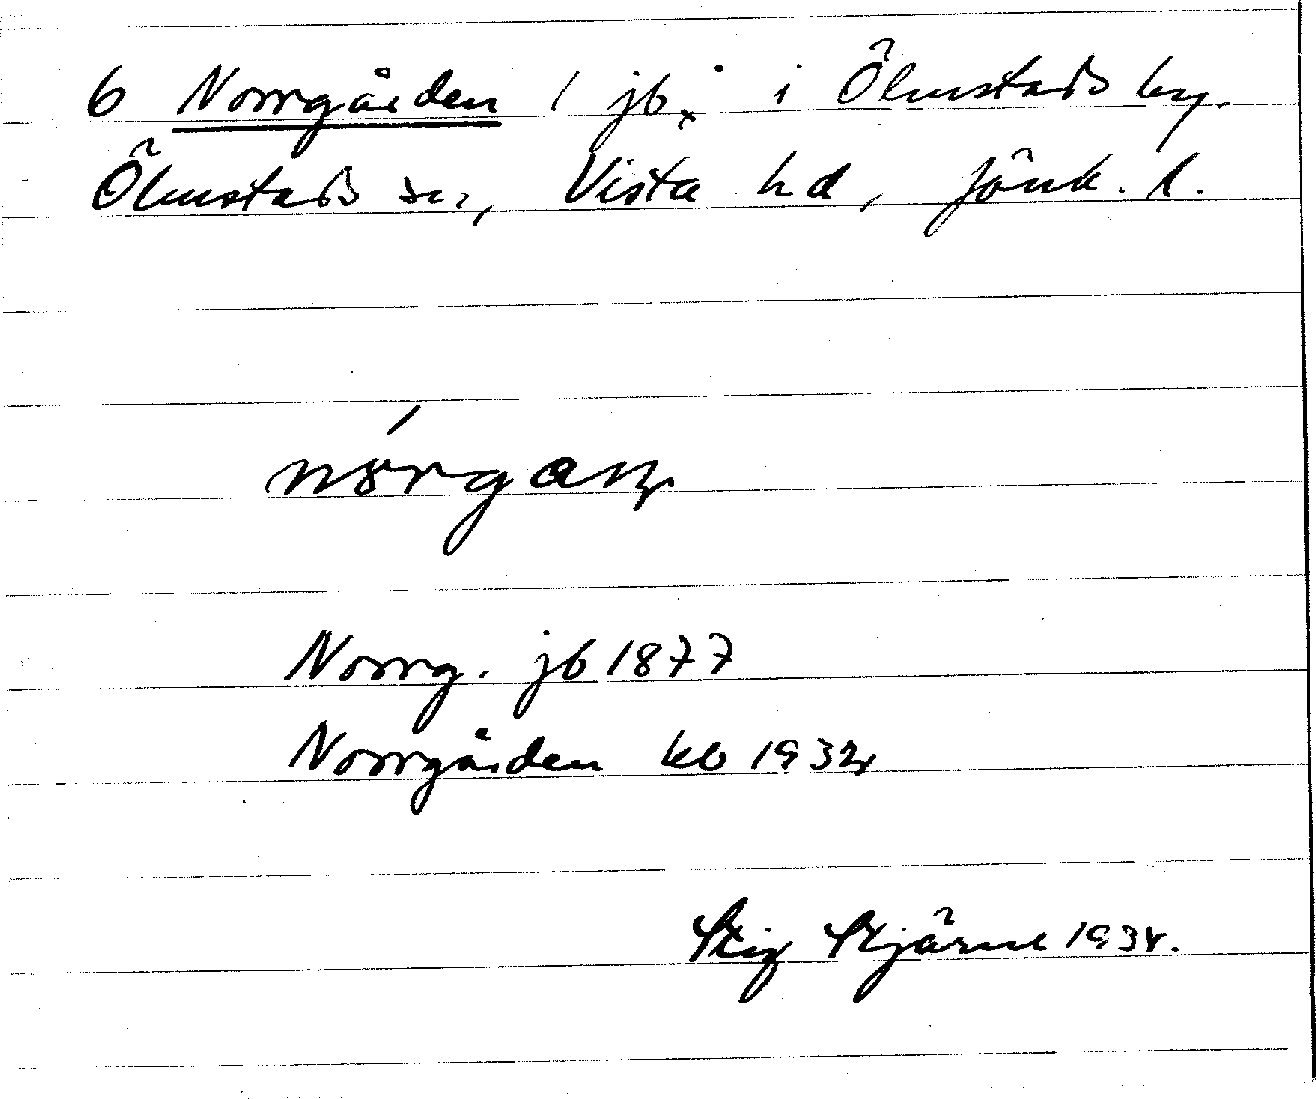 6 Norrgården 1 jb. i Ölmstads by.
Ölmstads sn, Vista hd, Jönk. l.
Norrg. jb 1877
Norrgården kb 1932
Stig Stjärne